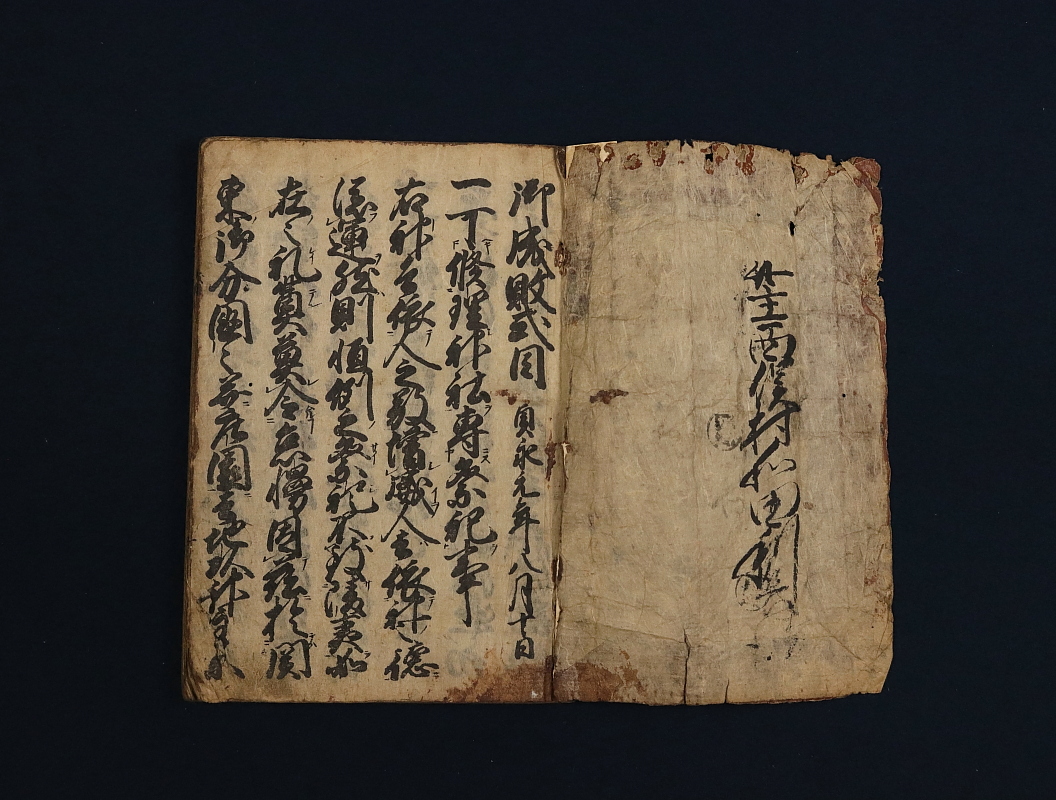 主西俣村和田
御成敗式目 貞永元年八月十日
一可修理神社専祭祀事
右神者依人之敬増威人者依神之徳
添運然則恒例之祭祀不致陵夷如
在之礼奠莫令怠慢因茲於関
東御分國々并庄園者地頭神